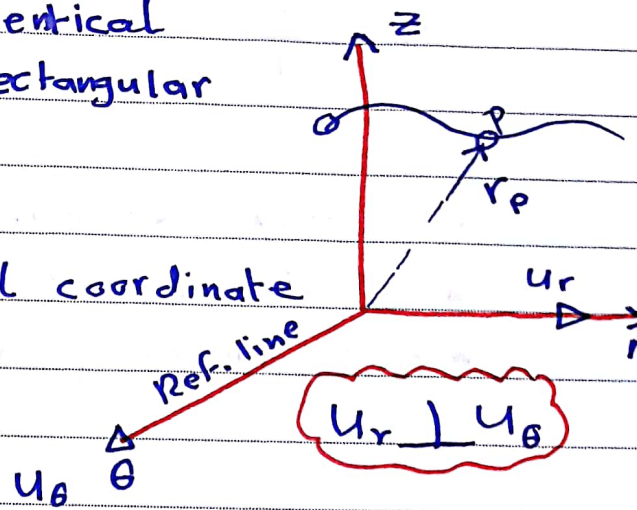 entical
z
ectangular
P
rp
l coordinate
ur
r
Ref. line
ur ⊥ uθ
θ
uθ